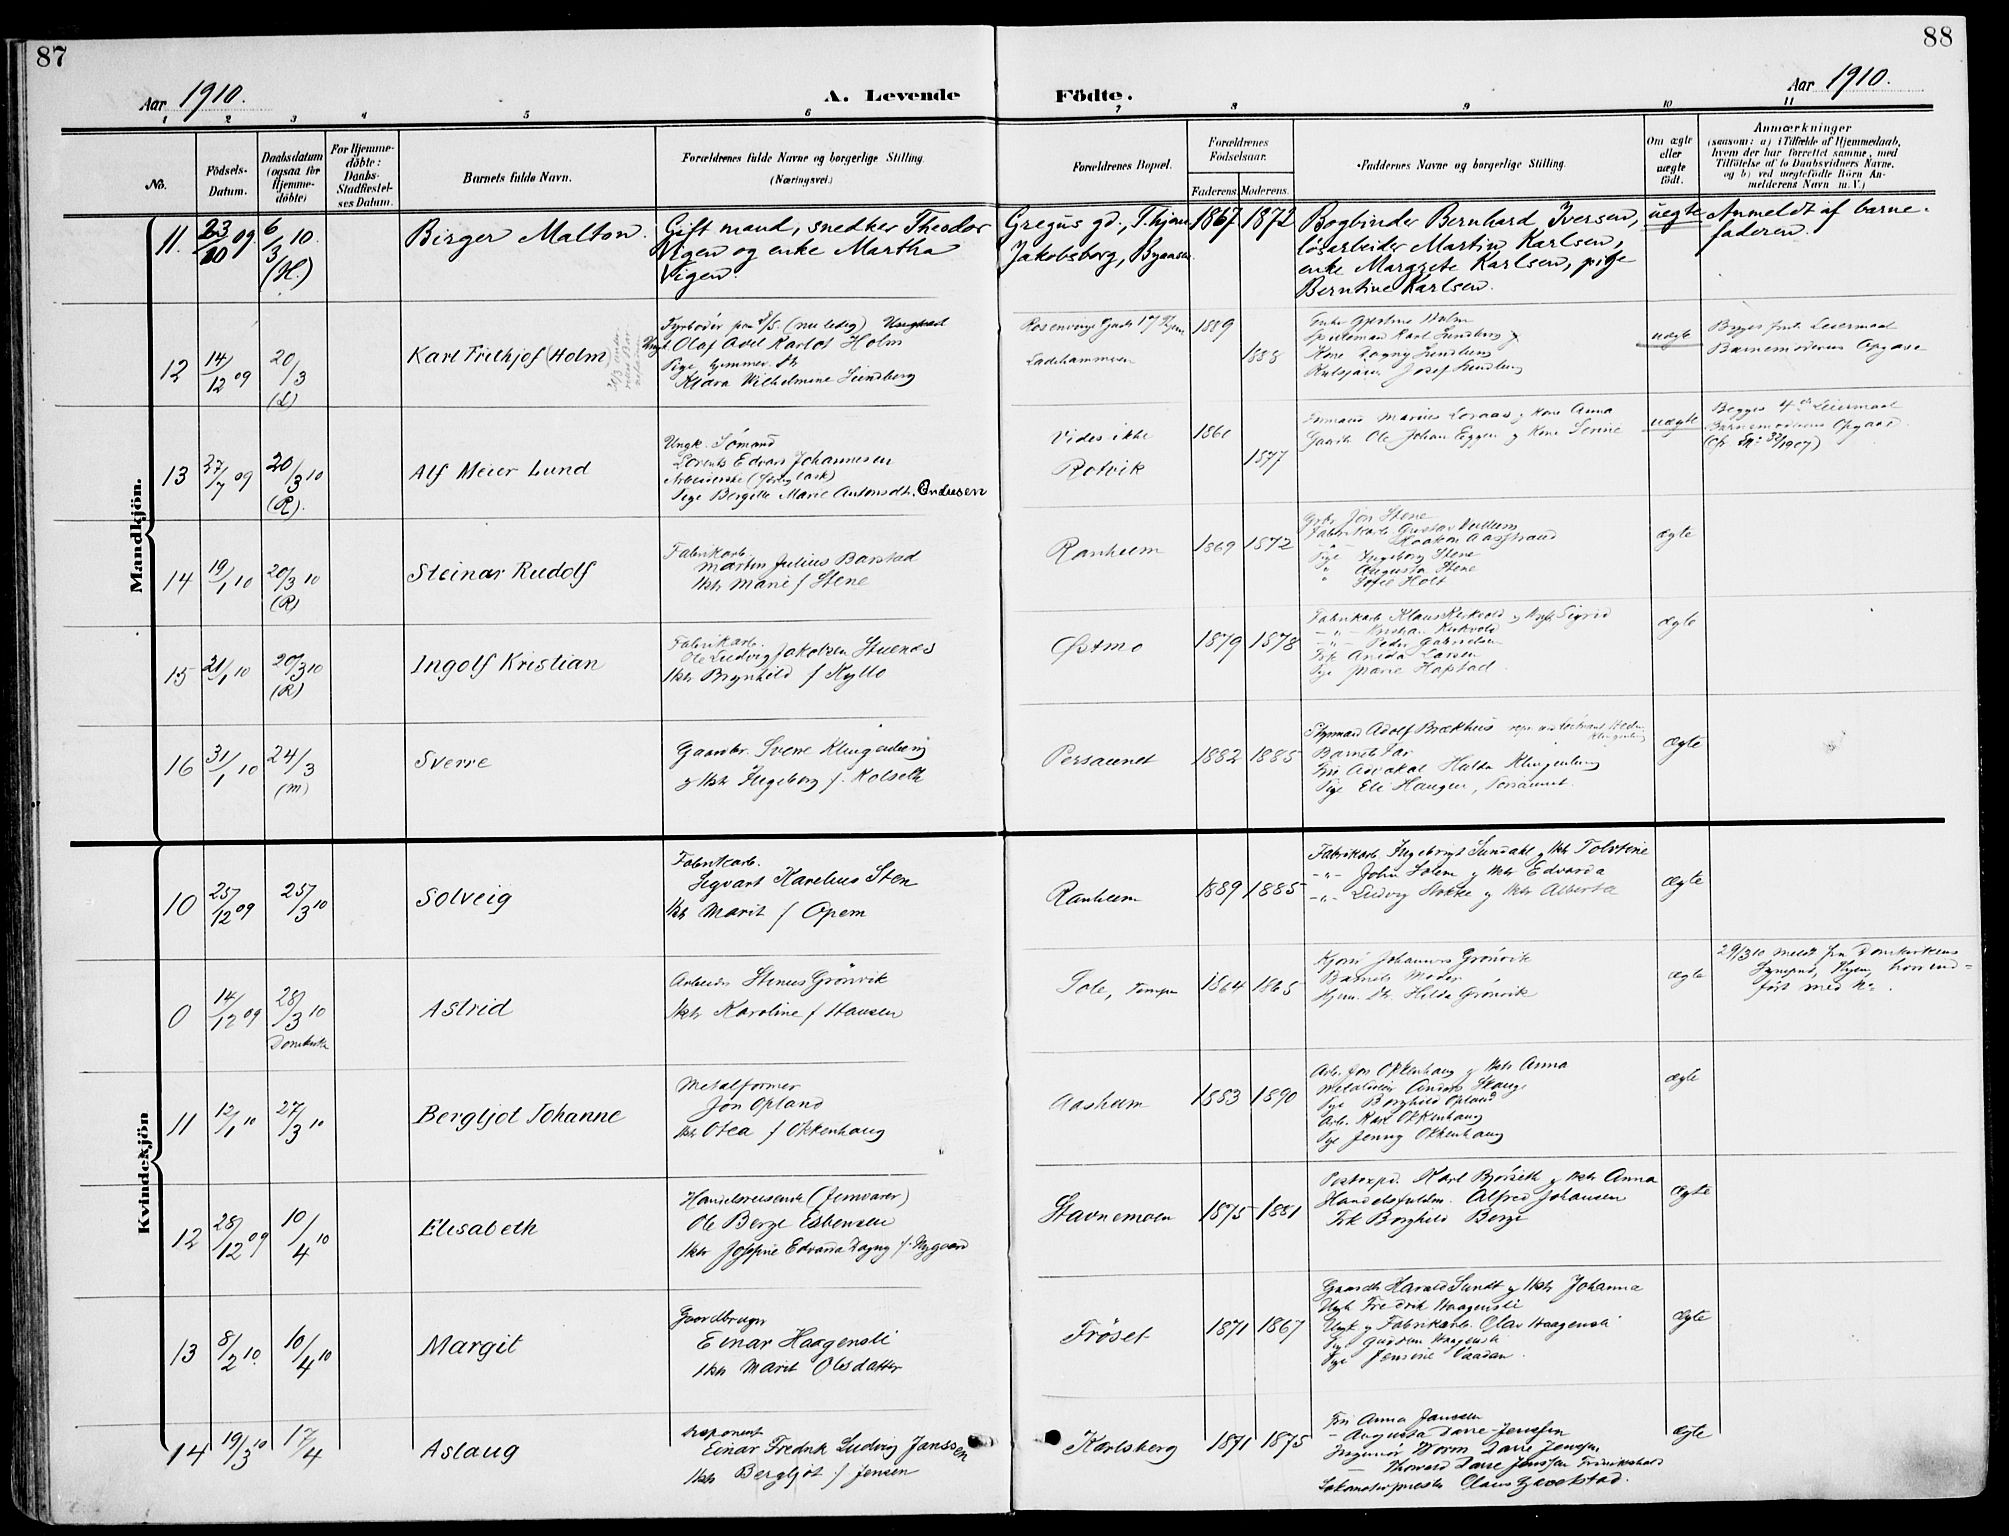 87
88
Aar 1910.
A. Levende
Födte.
Aar 1910.
1 2 3 4 5 6 7 8 9 10 11
No.
Födsels-Datum.
Daabsdatum (ogsaa for Hjemme-döbte)
For Hjemme-döbte: Daabs-Stadfæstel-ses Datum.
Barnets fulde Navn.
Forældrenes fulde Navne og borgerlige Stilling.
(Næringsvei.)
Forældrenes Bopæl.
Forældrenes Födselsaar.
Faderens. Moderens.
Faddernes Navne og borgerlige Stilling.
Om ægte eller uægte födt.
Anmærkninger
(saasom: a) i Tilfælde af Hjemmedaab,
hvem der har forrettet samme, med
Tilföielse af to Daabsvidners Navne.
og b) ved uægtefödte Börn An-
melderens Navn m. V.)
Mandkjön.
11. 23/10 09. 6/3 10. (H.)
Birger Malton.
Gift mand, snedker Theodor
Vigen og enke Martha
Vigen.
Gregus gd., Thjem
Jakobsborg, Byaasen.
1867 1872
Bogbinder Bernhard Iversen,
lösarbeider Martin Karlsen,
enke Margrete Karlsen, pige
Berntine Karlsen.
uegte
Anmeldt af barne-
faderen.
12 14/12 09 20/3 (L)
Karl Frithjof (Holm)
Fyrböder paa S/S. (nu ledig)
Ungk. Olaf Axel Karlot Holm
Pige, hjemmev. Dtr
Klara Vilhelmine Lundberg
Rosenborg Gade 17
Ladehammeren
1889
1888
Enke Gjertine Holm
Karl Lundberg
Kone Dagny Lundberg
Josef Lundberg
uægte
Begges förste Leiermaal
Barnemoderens Opgave
13 27/7 09 20/3 10 (R).
Alf Meier Lund
Ungk. Sömand
Lorents Edvard Johannesen
Arbeiderske
Pige Bergitte Marie Antonsdt. Andresen
Vides ikke
Rotvik
1861
1877
Marius Loraas og Kone Anna
Gaardb. Ole Johan Eggen og Kone Serine
uægte
Begges 4de Leiermaal
Barnemoderens Opgave.
14 19/1 10 20/3 10 (R)
Steinar Rudolf
Fabrikarb.
Martin Julius Barstad
Hstr Marie f Stene
Ranheim
1869 1872
Gbr. Jon Stene
Fabrikarb. Gustav
Haakon Aasstrand
Pige Ingeborg Stene
" Augusta Stene
" Sofie Holt
ægte
15 21/1 10 20/3 10 (R)
Ingolf Kristian
Fabrikarb.
Ole Ludvig Jakobsen Stuenes
Hstr Brynhild f Kyllo
Östmo
1879 1878
Fabrikarb. Klaus Kirkvold og Hstr. Sigrid
-"- Kirkvold
-"- Peder Gabrielsen
Frk Anida Larsen
Pige Marie Hapstad
ægte
16 31/1 10 24/3 (m)
Sverre
Gaardbr. Sverre Klingenberg
og Hstr Ingeborg f. Kolseth
Persaunet
1882 1885
Styrmand Adolf Brækhus
Klingenberg
Barnets Far
Fru Advokat Hulda Klingenberg
Pige Eli Haugen, Persaunet.
ægte
Kvindekjön
10 25/12 09 25/3 10
Solveig
Fabrikarb.
Segvart Karelius Sten
Hstr Marit f Opem
Ranheim
1889 1885
Fabrikarb. Ingebrigt Sundahl og Hstr Tolstine
-"- John Solem og Hstr Edvarda
-"- Ludvig Stokke og Hstr Alberta
ægte
0 14/12 09 28/3 10 Domkirke
Astrid
Arbeider Stenus Grönvik
Hstr Karoline f Hansen
Sole, Tempe
1864 1865
Johannes Grönvik
Barnets Moder
Hjem. Dtr. Hilda Grönvik
ægte
29/3 10 meldt fra Domkirkens
Sognepr., Thjem, hvor ind-
fört med No.
11 12/1 10 27/3 10
Bergljot Johanne
Metalformer
Jon Opland
Hstr Otea f Okkenhaug
Aasheim
1883 1890
Arb. Jon Okkenhaug og Hstr Anna
Anders Skauge
Pige Borghild Opland
Arb. Karl Okkenhaug
Pige Jenny Okkenhaug
ægte
12 28/12 09 10/4 10
Elisabeth
Handelsreisende (Jernvarer)
Ole Berge Esbensen
Hstr Josefine Edvarda Dagny f. Nygaard
Stavnemoen
1875 1881
Postexp. Karl Björseth og Hstr Anna
Handelsfuldm. Alfred Johansen
Frk Borghild Berge
ægte
13 8/2 10. 10/4 10
Margit
Gaardbruger
Einar Haagensli
Hstr Marit Olsdatter
Fröset
1871 1867
Gaardb. Harald Sundt og Hstr Johanna
Ungk Fredrik Haagensli
Ungk og Fabrikarb. Olav Haagensli
Pige Haagensli
Pige Jensine Vaadan.
ægte
14 19/3 10 17/4
Aslaug
Disponent
Einar Fredrik Ludvig Janssen
Hstr Bergljot f Jensen
Karlsberg
1871 1875
Fru Anna Janssen
- Augusta Darre-Jenssen
Ingeniör Worm Darre Jenssen
- Thorvard Darre Jenssen Fredrikshald
Lokomotivmester Claus Gjeelstad.
ægte